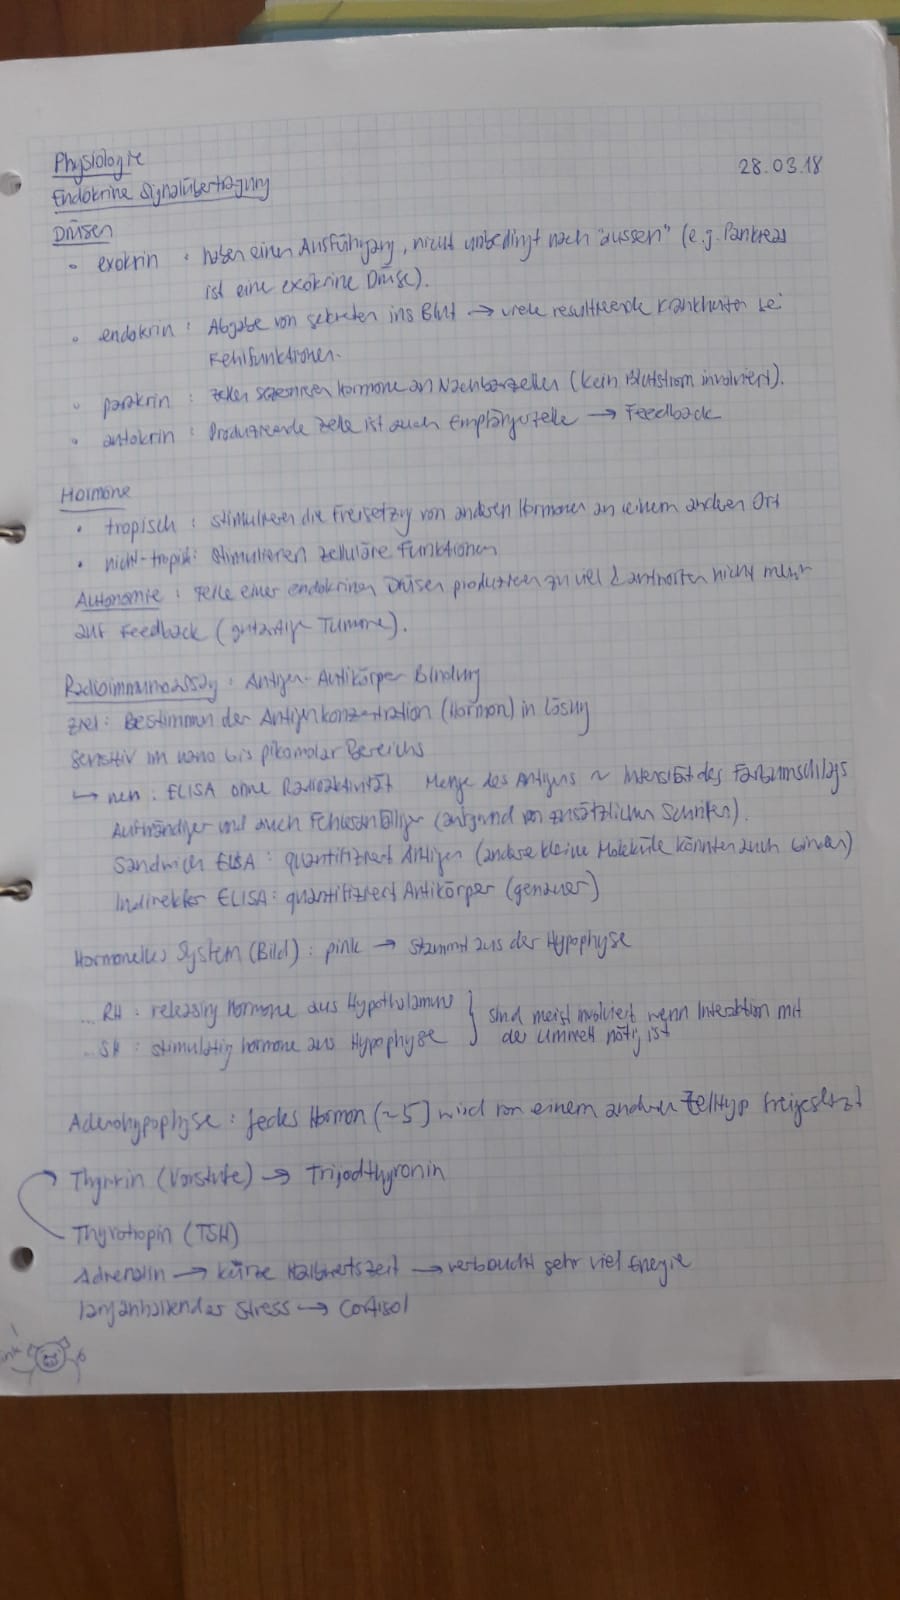 Physiologie
28.03.18
Endokrine Signalübertragung
Drüsen
• exokrin : haben einen Ausführgang, nicht unbedingt nach "aussen" (e.g. Pankreas
ist eine exokrine Drüse).
• endokrin : Abgabe von Sekreten ins Blut → viele resultierende Krankheiten bei
Fehlfunktionen.
• parakrin : Zellen sezernieren Hormone an Nachbarzellen (kein Blutstrom involviert).
• autokrin : Produzierende Zelle ist auch Empfängerzelle → Feedback
Hormone
• tropisch : stimulieren die Freisetzg von anderen Hormonen an einem anderen Ort
• nicht-tropisch: stimulieren zelluläre Funktionen
Autonomie : Teile einer endokrinen Drüsen produzieren zu viel & antworten nicht mehr
auf Feedback (gutartige Tumore).
Radioimmunoassay : Antigen-Antikörper Bindung
Ziel : Bestimmen der Antigenkonzentration (Hormon) in Lösung
Sensitiv im nano bis pikomolar Bereichs
↳ neu : ELISA ohne Radioaktivität Menge des Antigens ~ Intensität des Farbumschlags
Aufwändiger und auch Fehleranfälliger (aufgrund von zusätzlichen Schritten).
Sandwich ELISA : quantifiziert Antigen (andere kleine Moleküle könnten auch binden)
Indirekter ELISA : quantifiziert Antikörper (genauer)
Hormonelles System (Bild) : pink → stammt aus der Hypophyse
...RH : releasing hormone aus Hypothalamus } sind meist involviert wenn Interaktion mit
...SH : stimulatig hormone aus Hypophyse der Umwelt nötig ist
Adenohypophyse : Jedes Hormon (~5) wird von einem anderen Zelltyp freigesetzt
Thyroxin (Vorstufe) → Trijodthyronin
Thyrotropin (TSH)
Adrenalin → kurze Halbwertszeit → verbraucht sehr viel Energie
langanhaltender Stress → Cortisol